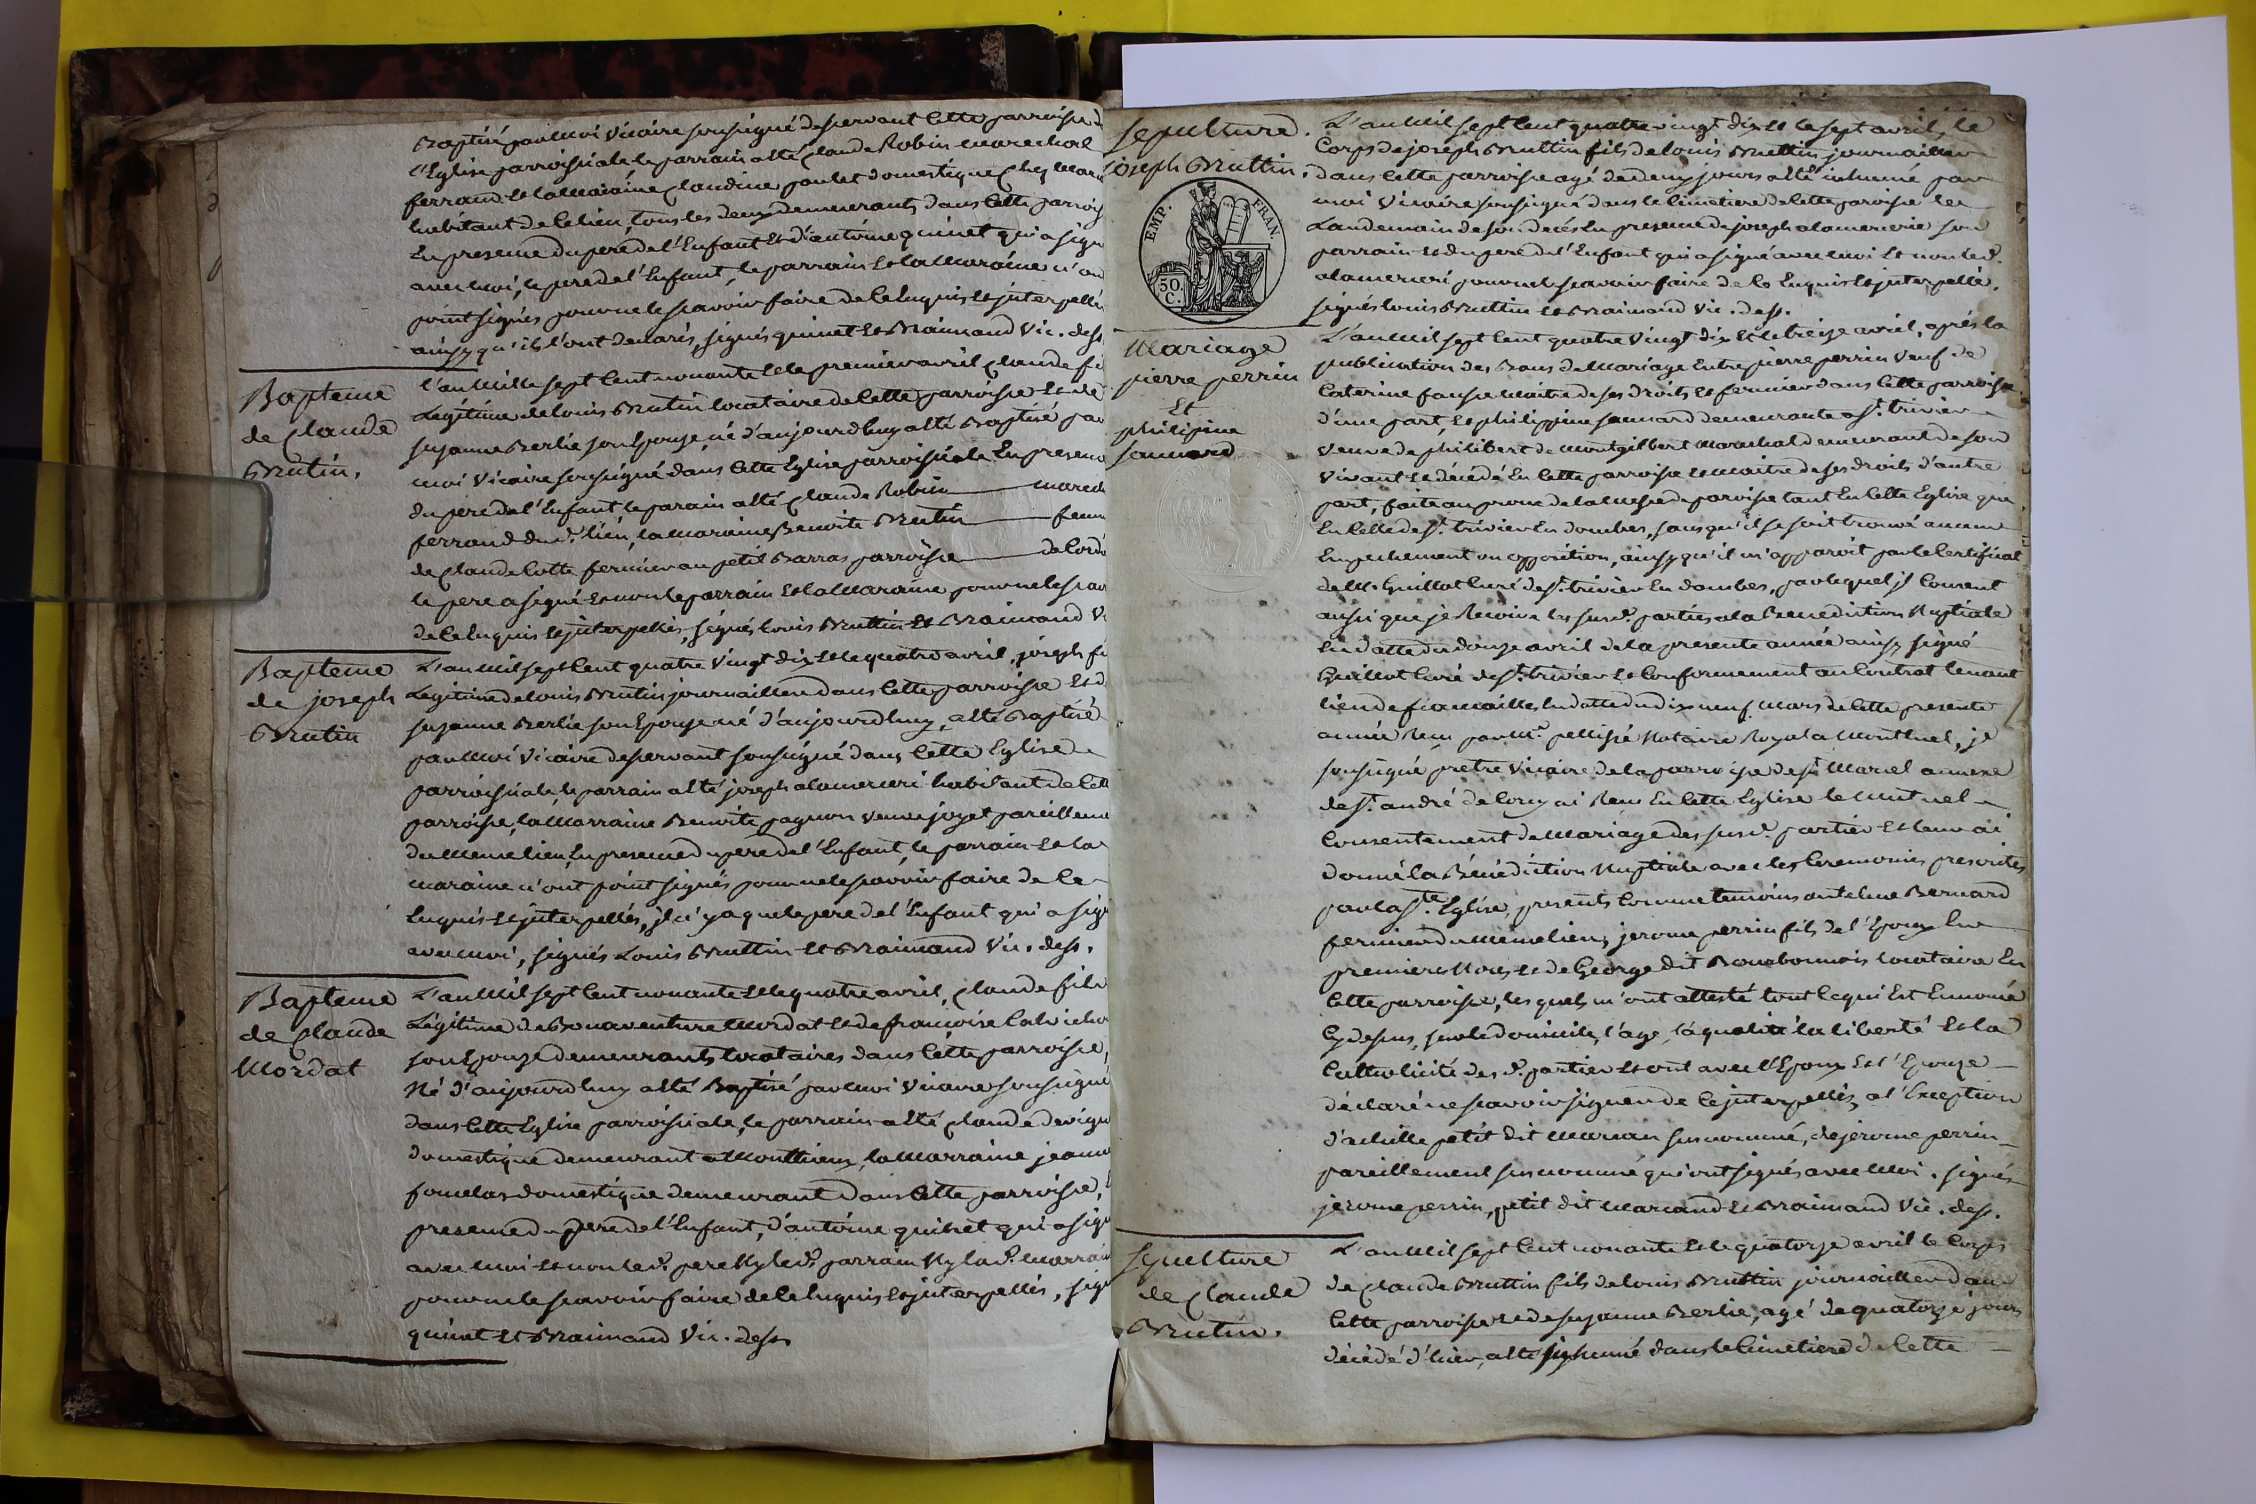 Baptisé par moi Vicaire soussigné desservant cette parroisse d
l'Eglise parroissiale, le parrain a été Claude Robin marechal
ferrand et la maraine Claudine poulet domestique chez
habitant de ce lieu, tous les deux demeurants dans cette parrois
En presence du pere de l'Enfant et d'antoine quinet qui a sign
avec moi, le pere de l'Enfant, le parrain et la maraine n'on
point signés pour ne le scavoir faire de ce Enquis et interpellé
ainsy qu'ils l'ont declarés, signés quinet et Braimand Vic. dess.
Bapteme
de Claude
Brutin.
l'an mille sept cent nonante et le premier avril Claude fi
Legitime de louis Brutin locataire de cette parroisse et de
suzanne Berlie son Epouse, né d'aujourdhuy a été Baptisé par
moi Vicaire soussigné dans cette Eglise parroissiale En presenc
du pere de l'Enfant le parain a été Claude Robin marech
ferrand du d. lieu, la maraine Benoite Brutin fem
de Claude Cotte fermier au petit Barras parroisse de Cord
le pere a signé et non le parrain et la maraine pour ne le scav
de ce Enquis et interpellés, signés louis Bruttin et Braimand V
Bapteme
de joseph
Brutin
L'an mil sept cent quatre vingt dix et le quatre avril, joseph fi
Legitime de louis Brutin journaillier dans cette parroisse et d
suzanne Berlie son Epouse né d'aujourdhuy, a été Baptisé
par moi Vicaire desservant soussigné dans cette Eglise
parroissiale, le parrain a été joseph alamerceri habitant de cett
parroisse, la marraine Benoite pagnon veuve joyet pareilleme
du meme lieu, En presence du pere de l'Enfant, le parrain et la
maraine n'ont point signés pour ne le scavoir faire de ce
Enquis et interpellés, il n'y a que le pere de l'Enfant qui a sign
avec moi, signés Louis Bruttin et Braimand Vic. dess.
Bapteme
de Claude
Mordat
L'an mil sept cent nonante et le quatre avril, Claude fils
Légitime de Bonaventure Mordat et de francoise
son Epouze demeurants locataires dans cette parroisse,
Né d'aujourdhuy a été Baptisé par moi Vicaire soussigné
dans cette Eglise parroissiale, le parrain a été Claude devign
domestique demeurant a Monthieux, la marraine jeann
domestique demeurant dans cette parroisse,
presence du pere de l'Enfant, d'antoine quinet qui a sign
avec moi et non le d. pere Ny le d. parrain Ny la d. marrai
pour ne le scavoir faire de ce Enquis et interpellés, sign
quinet et Braimand Vic. dess.
sepulture.
joseph Bruttin.
EMP. FRAN.
50.
C.
L'an mil sept cent quatre vingt dix et le sept avril, le
Corps de joseph Bruttin fils de louis Bruttin journaillier
dans cette parroisse agé de deux jours a été inhumé par
moi Vicaire soussigné dans le cimetiere de cette paroisse le
Landemain de son decés En presence de joseph alamercerie son
parrain et du pere de l'Enfant qui a signé avec moi et non le d.
alamerceri pour ne le scavoir faire de ce Enquis et interpellé.
signés louis Bruttin et Braimand Vic. dess.
Mariage
pierre perrin
Et
philipine
L'an mil sept cent quatre vingt dix et le treize avril, après la
publication des Bans de mariage Entre pierre perrin veuf de
Caterine fausse maitre de ses droits et fermier dans cette parroisse
d'une part, et philippine demeurante a St. trivier
veuve de philibert de Montgilbert marechal demeurant de son
vivant et décédé En cette parroisse et maitre de ses droits d'autre
part, faite au prone de la messe de paroisse tant En cette Eglise que
En celle de St. trivier En dombes, sans qu'il se soit trouvé aucun
Empechement ou opposition, ainsy qu'il m'apparoit par le Certificat
de M. Guillot Curé de St. trivier En dombes, par lequel il Consent
aussi que je Recoive les susd. parties a la Benediction Nuptiale
En datte du douze avril de la presente année ainsy signé
Guillot Curé de St. trivier et Conformement au Contrat tenant
lieu de fiancailles En datte du dix neuf mars de cette presente
année Recu par Me. pellissé Notaire Royal a Montluel, je
soussigné pretre Vicaire de la parroisse de St. Marcel annexe
de St. andré de Corcy ai Recu En cette Eglise le mutuel
Consentement de Mariage des susd. parties et leur ai
donné la Bénédiction Nuptiale avec les Ceremonies prescrites
par la Ste. Eglise, presents Comme temoins antelme Bernard
fermier du meme lieu, jerome perrin fils de l'Epoux En
premieres Noces et de George dit Bourbonnois locataire En
cette parroisse, les quels m'ont attesté tout ce qui Est Enoncé
Cy dessus, sur le domicile, l'age, la qualité la liberté et la
Catholicité des d. parties et ont avec l'Epoux Et l'Epouze
déclaré ne scavoir signer de ce interpellés, a l'Exception
d'achille petit dit marcan susnommé, de jerome perrin
pareillement susnommé qui ont signés avec moi. signés
jerome perrin, petit dit marcand et Braimand Vic. dess.
sepulture
de Claude
Brutin.
L'an mil sept cent nonante et le quatorze avril le Corps
de Claude Bruttin fils de louis Bruttin journaillier dans
cette parroisse et de suzanne Berlie, agé de quatorze jours
décédé d'hier, a été inhumé dans le Cimetiere de cette